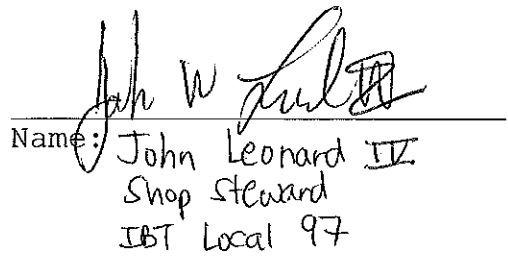 John W Leonard IV
Name: John Leonard IV
Shop Steward
IBT Local 97